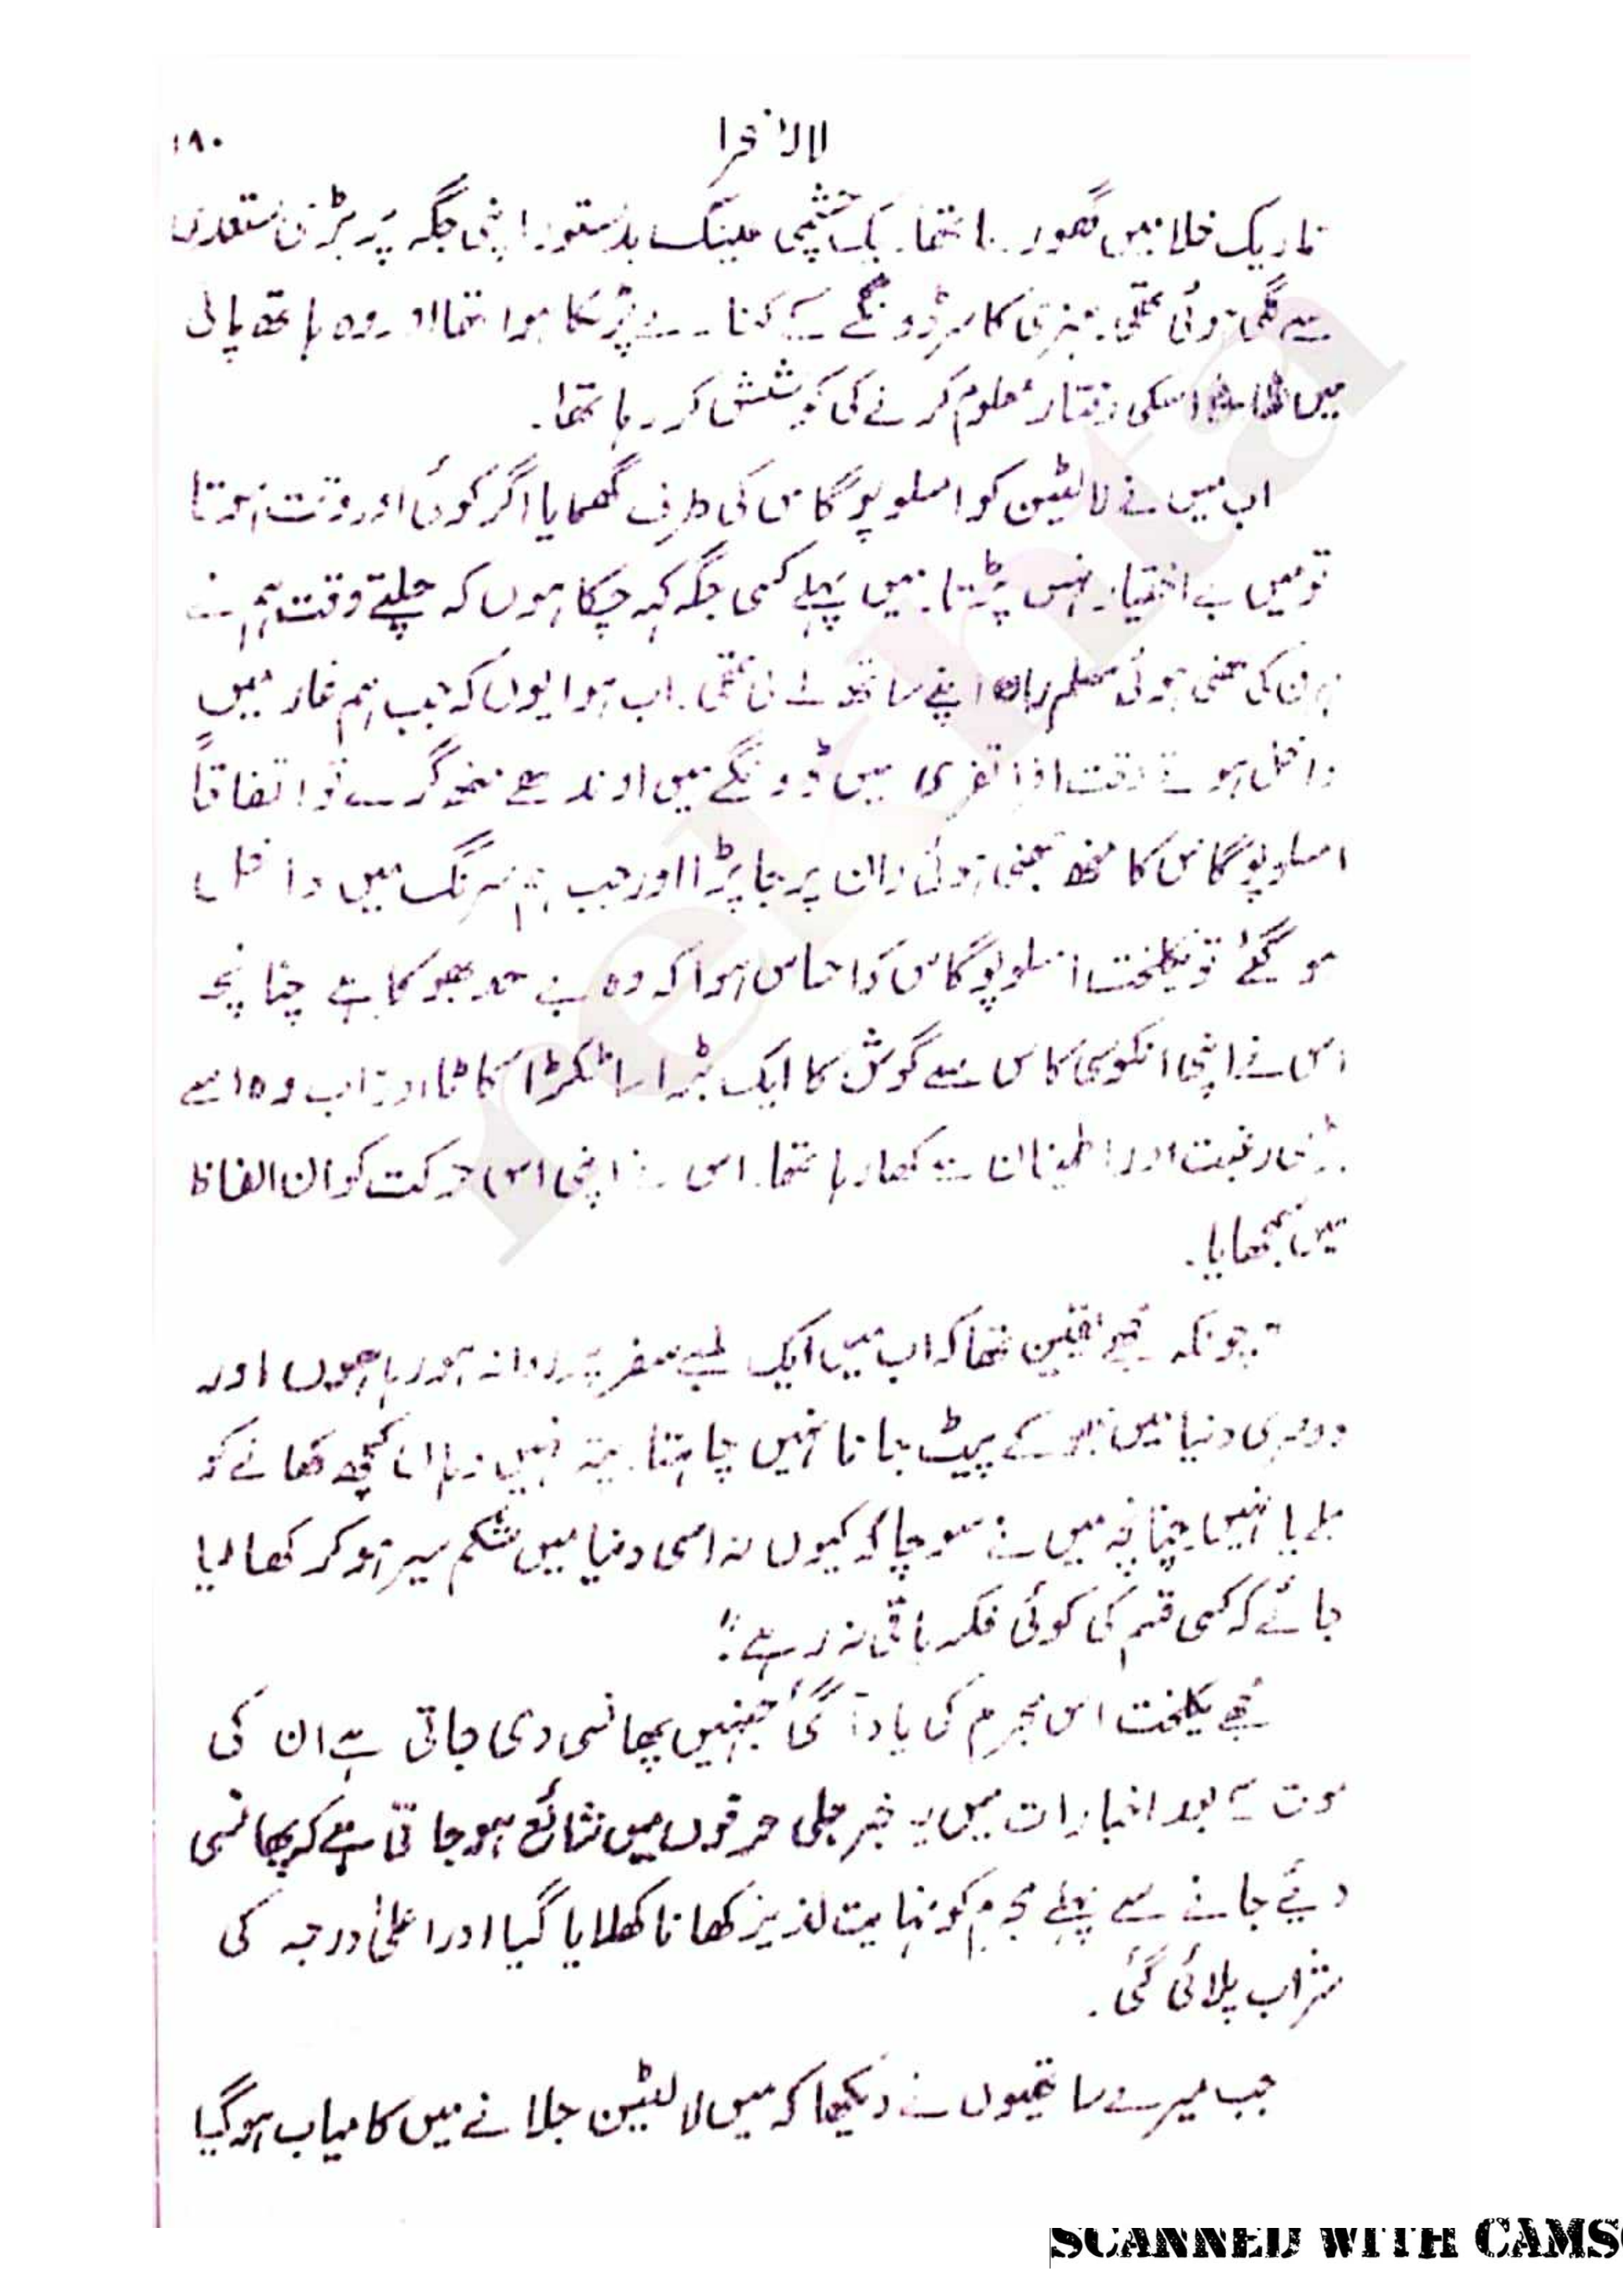 لالۂ فرا ۱۸۰
تاریک خلا میں گھور رہا تھا۔ یک چشمی عینک بدستور اپنی جگہ پر بڑی مستعدی
سے لگی ہوئی تھی۔ ہنری کا سر ڈونگے کے کنارے پر ٹکا ہوا تھا اور وہ ہاتھ پانی
میں اسکی رفتار معلوم کرنے کی کوشش کر رہا تھا۔
اب میں نے لالٹین کو امسلوپوگاس کی طرف گھمایا اگر کوئی اور وقت ہوتا
تو میں بے اختیار ہنس پڑتا۔ میں پہلے کسی جگہ کہہ چکا ہوں کہ چلتے وقت ہم نے
ہرن کی بھنی ہوئی مسلم ران اپنے ساتھ لے لی تھی۔ اب ہوا یوں کہ جب ہم غار میں
داخل ہوتے وقت افراتفری میں ڈونگے میں اوندھے منھ گرے تو اتفاقاً
امسلوپوگاس کا منھ بھنی ہوئی ران پر جا پڑا اور جب ہم سرنگ میں داخل
ہو گئے تو یکلخت امسلوپوگاس کو احساس ہوا کہ وہ بے حد بھوکا ہے چنانچہ
اس نے اپنی انکوسی کاس سے گوشت کا ایک بڑا سا ٹکڑا کاٹا اور اب وہ اسے
بڑی رغبت اور اطمینان سے کھا رہا تھا۔ اس نے اپنی اس حرکت کو ان الفاظ
میں سمجھایا۔
"چونکہ مجھے یقین تھا کہ اب میں ایک لمبے سفر پر روانہ ہو رہا ہوں اور
دوسری دنیا میں بھوکے پیٹ جانا نہیں چاہتا۔ پتہ نہیں وہاں کچھ کھانے کو
ملے یا نہیں۔ چنانچہ میں نے سوچا کہ کیوں نہ اسی دنیا میں شکم سیر ہو کر کھا لیا
جائے کہ کسی قسم کی کوئی فکر باقی نہ رہے"۔
مجھے یکلخت اس مجرم کی یاد آ گئی جنہیں پھانسی دی جاتی ہے ان کی
موت کے بعد اخبارات میں یہ خبر جلی حرفوں میں شائع ہو جاتی ہے کہ پھانسی
دیئے جانے سے پہلے مجرم کو نہایت لذیذ کھانا کھلایا گیا اور اعلیٰ درجہ کی
شراب پلائی گئی۔
جب میرے ساتھیوں نے دیکھا کہ میں لالٹین جلانے میں کامیاب ہو گیا
rekhta
SCANNED WITH CAMS